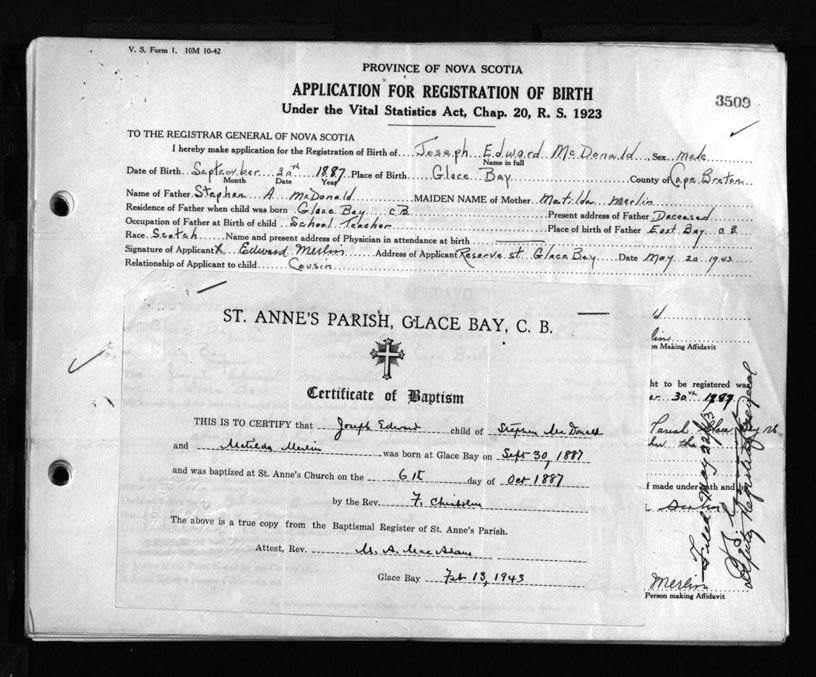 V. S. Form 1. 10M 10-42
PROVINCE OF NOVA SCOTIA
APPLICATION FOR REGISTRATION OF BIRTH
3509
Under the Vital Statistics Act, Chap. 20, R. S. 1923
TO THE REGISTRAR GENERAL OF NOVA SCOTIA
I hereby make application for the Registration of Birth of Joseph Edward McDonald, Sex male
Name in full
Date of Birth September 30th 1887 Place of Birth Glace Bay County of Cape Breton
Month Date Year
Name of Father Stephen A McDonald MAIDEN NAME of Mother Matilda Merlin
Residence of Father when child was born Glace Bay CB Present address of Father Deceased
Occupation of Father at Birth of child School Teacher Place of birth of Father East Bay C B
Race Scotch Name and present address of Physician in attendance at birth
Signature of Applicant X Edward Merlin Address of Applicant Reserve st. Glace Bay Date May 20 1943
Relationship of Applicant to child Cousin
ST. ANNE'S PARISH, GLACE BAY, C. B.
Certificate of Baptism
THIS IS TO CERTIFY that Joseph Edward child of Stephen MacDonald
and Matilda Merlin was born at Glace Bay on Sept 30, 1887
and was baptized at St. Anne's Church on the 6th day of Oct 1887
by the Rev. F. Chisholm
The above is a true copy from the Baptismal Register of St. Anne's Parish.
Attest, Rev. M. A. MacAdam
Glace Bay Feb 13, 1943
on Making Affidavit
ht to be registered was
30th 1887
Parish
the
f made under oath and by
Merlin
Person making Affidavit
Filed May 22/43
Deputy Registrar General